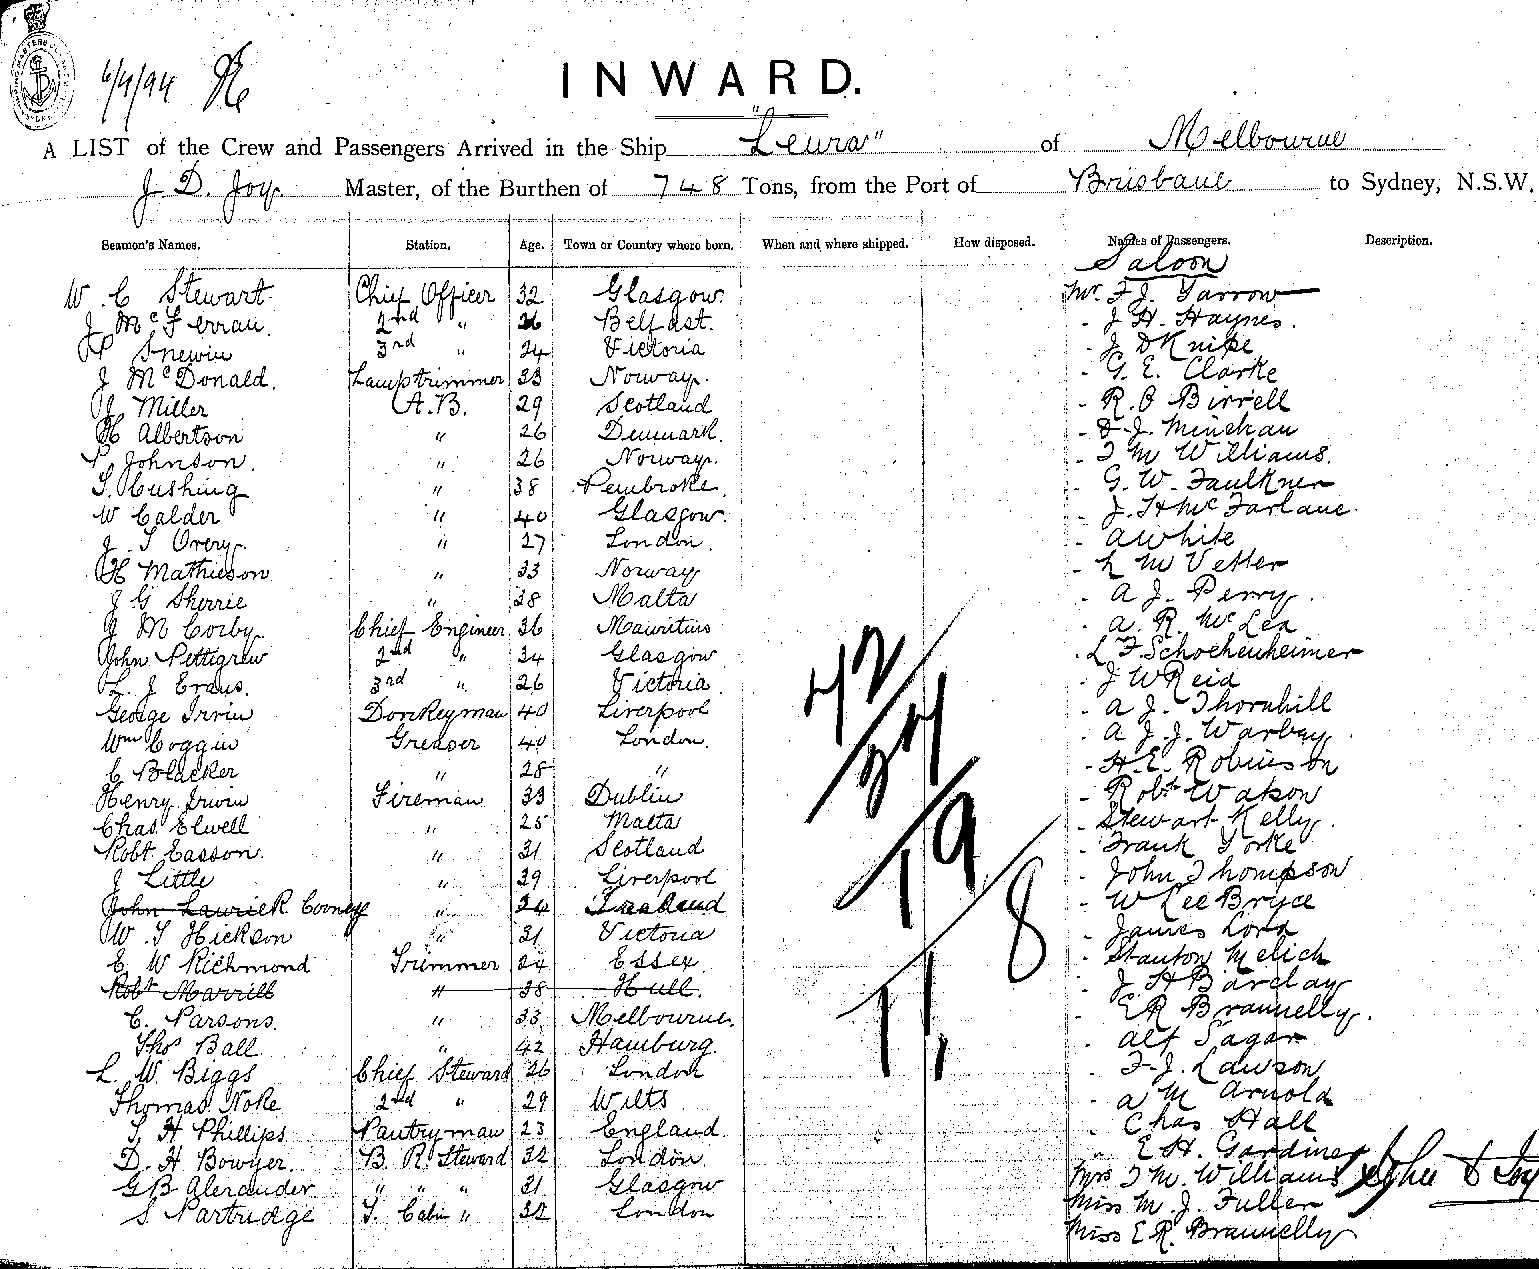 6/4/94
INWARD.
A LIST of the Crew and Passengers Arrived in the Ship "Leura" of Melbourne
J D. Joy. Master, of the Burthen of 748 Tons, from the Port of Brisbane to Sydney, N.S.W.
Seamen's Names. Station. Age. Town or Country where born. When and where shipped. How disposed. Names of Passengers. Description.
Saloon
W. C Stewart Chief Officer 32 Glasgow. Mr. F J. Yarrow
J McFerran. 2nd " 26 Belfast. - J H. Haynes.
Snewin 3rd " 24 Victoria - J D Knipe
J McDonald. Lamptrimmer 33 Norway. - G. E. Clarke
J Miller A.B. 29 Scotland - R. O Birrell
H Albertson " 26 Denmark. - J. Minehan
P. Johnson. " 26 Norway. - T M Williams.
T. Cushing " 38 Pembroke. - G. W. Faulkner
W Calder " 40 Glasgow. - J. H McFarlane
J. T Overy. " 27 London. - A White
H Mathieson " 33 Norway - L M Vetter
J G Sherrie " 38 Malta - A J. Perry.
J M Corby. Chief Engineer 36 Mauritius - A. R. McLea
John Pettigrew 2nd " 34 Glasgow - L F Schochenheimer
L. J Evans. 3rd " 26 Victoria - J W Reid
George Irvin Donkeyman 40 Liverpool - A J. Thornhill
Wm Coggin Greaser 40 London. - A J. J. Warbey
C Blacker " 28 " - H. E. Robinson
Henry Irwin Fireman 33 Dublin - Robt Watson
Chas Elwell " 25 Malta - Stewart Kelly.
Robt Easson. " 31 Scotland - Frank Yorke
J Little " 39 Liverpool - John Thompson
John Laurie R. Cooney " 24 Ireland - W Lee Bryce
W. T Hickson " 31 Victoria - James Lord
E W Richmond Trimmer 24 Essex - Stanton Melick
Robt Marrill " 38 Hull. - J H Barclay
C. Parsons. " 33 Melbourne. - E R Brannelly.
Thos Ball " 42 Hamburg. - Alf Sagar
L. W. Biggs Chief Steward 26 London - F. J. Lawson
Thomas Noke 2nd " 29 Wilts - A M Arnold
T. H Phillips Pantryman 23 England. - Chas Hall
D. H Bowyer. B. R. Steward 32 London. " E H. Gardiner
G B Alexander " " " 31 Glasgow Mrs T M. Williams
S Partridge T. Cabin " 32 London Miss M. J. Fuller
Miss E R. Brannelly
42
34
19
8
11,
John D Joy